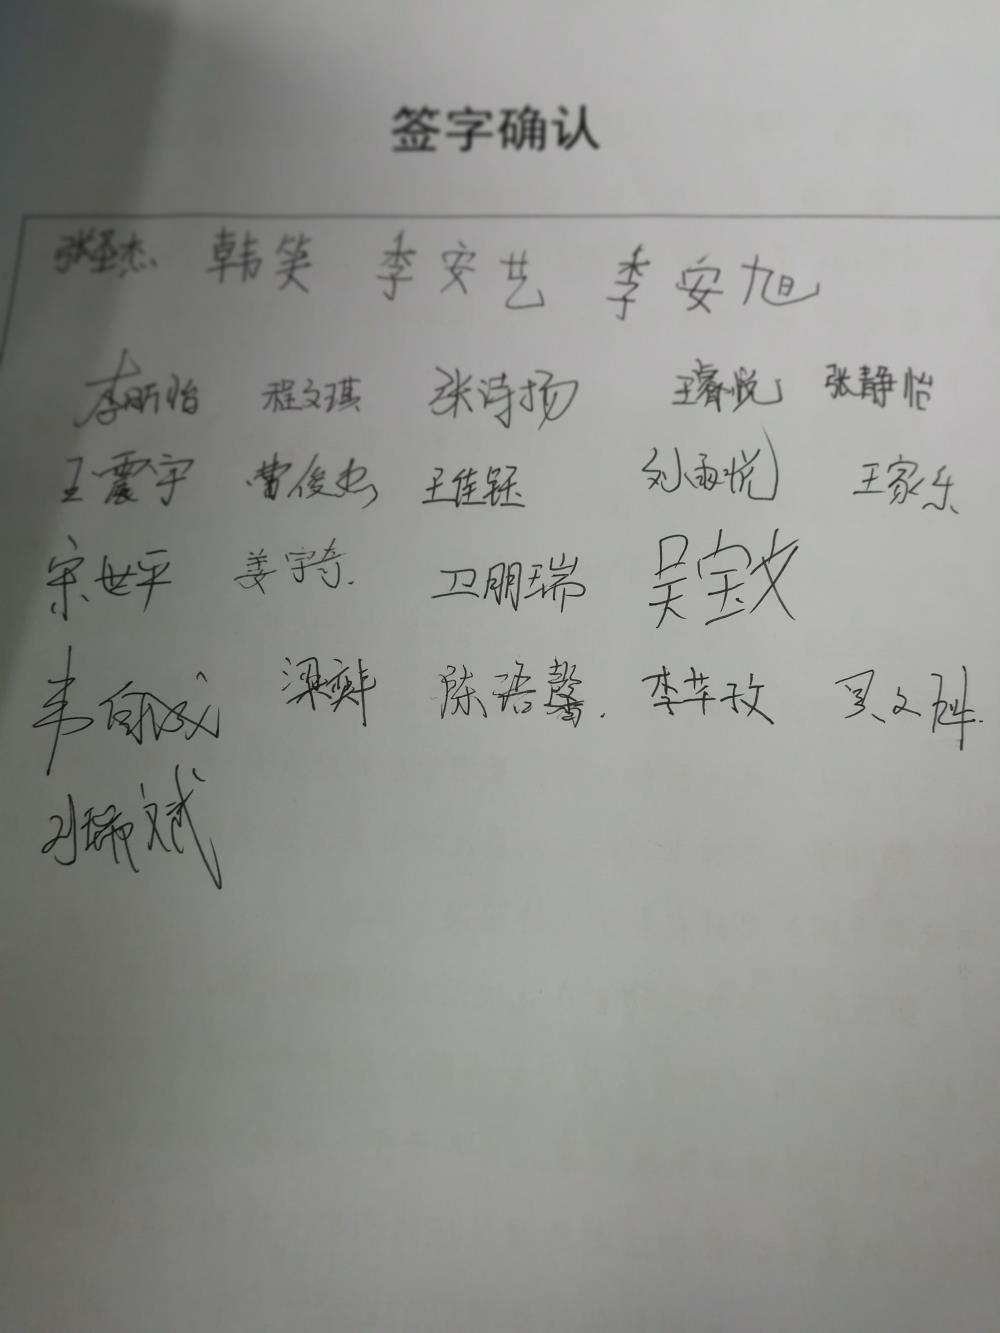 签字确认
张圣杰 韩笑 李安艺 李安旭
李昕怡 程文琪 张诗扬 王睿悦 张静怡
王震宇 曹俊杰 王佳钰 刘雨悦 王家乐
宋世平 姜宇奇 卫朋瑞 吴宝文
韦自成 梁奕 陈语馨 李芊孜 吴文
刘瑞斌